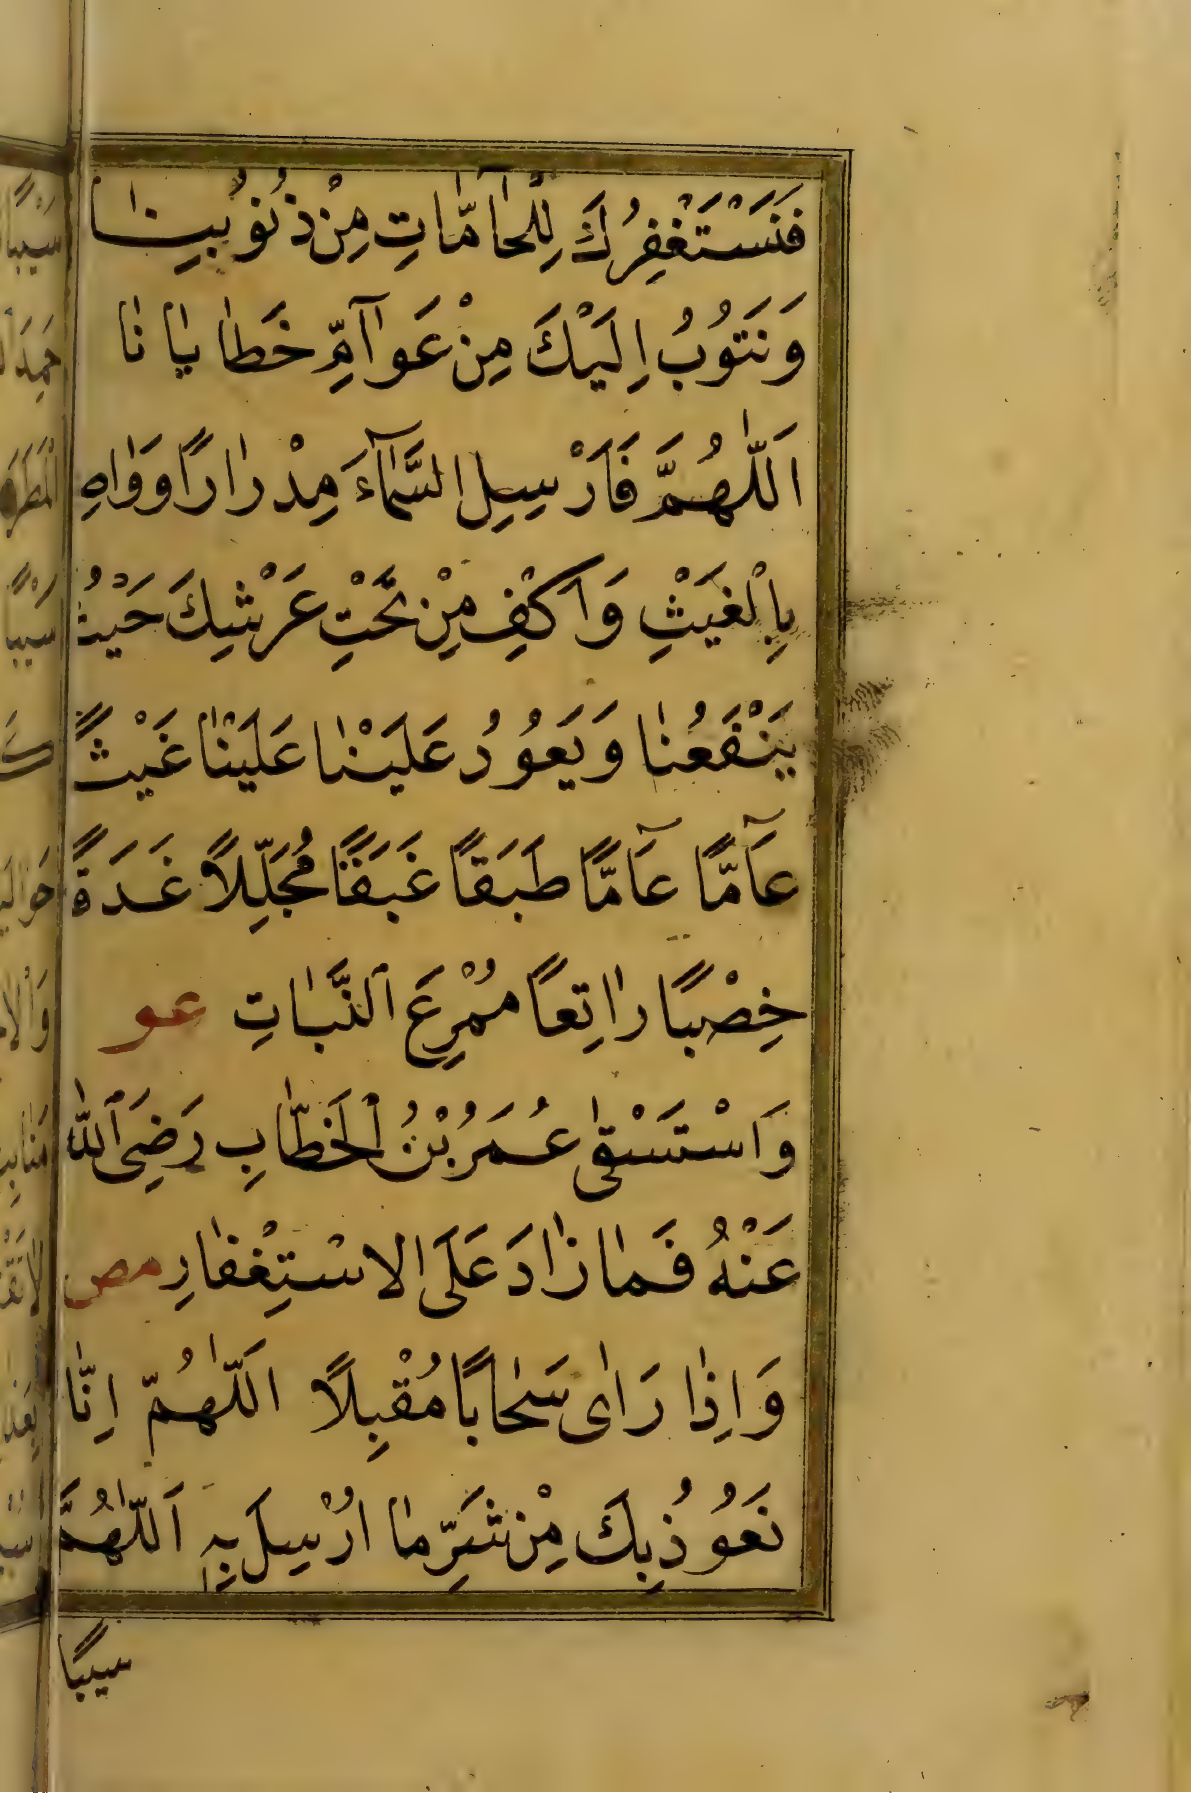 فَنَسْتَغْفِرُكَ لِلْحَآمَّاتِ مِنْ ذُنُوبِنَا
وَنَتُوبُ اِلَيْكَ مِنْ عَوَآمِّ خَطَايَانَا
اَللّٰهُمَّ فَاَرْسِلِ السَّمَآءَ مِدْرَارًا وَوَاصِ
بِالْغَيْثِ وَاكْفِ مِنْ تَحْتِ عَرْشِكَ حَيْثُ
يَنْفَعُنَا وَيَعُودُ عَلَيْنَا عَلَيْنَا غَيْثًا
عَآمًّا عَآمًّا طَبَقًا غَبَقًا مُجَلِّلًا غَدَقًا
خِصْبًا رَاتِعًا مُمْرِعَ النَّبَاتِ عو
وَاسْتَسْقٰى عُمَرُ بْنُ الْخَطَّابِ رَضِىَ اللّٰهُ
عَنْهُ فَمَا زَادَ عَلَى الاسْتِغْفَارِ مص
وَاِذَا رَاٰى سَحَابًا مُقْبِلًا اَللّٰهُمَّ اِنَّا
نَعُوذُ بِكَ مِنْ شَرِّ مَا اُرْسِلَ بِهِ اَللّٰهُمَّ
سَيْبًا